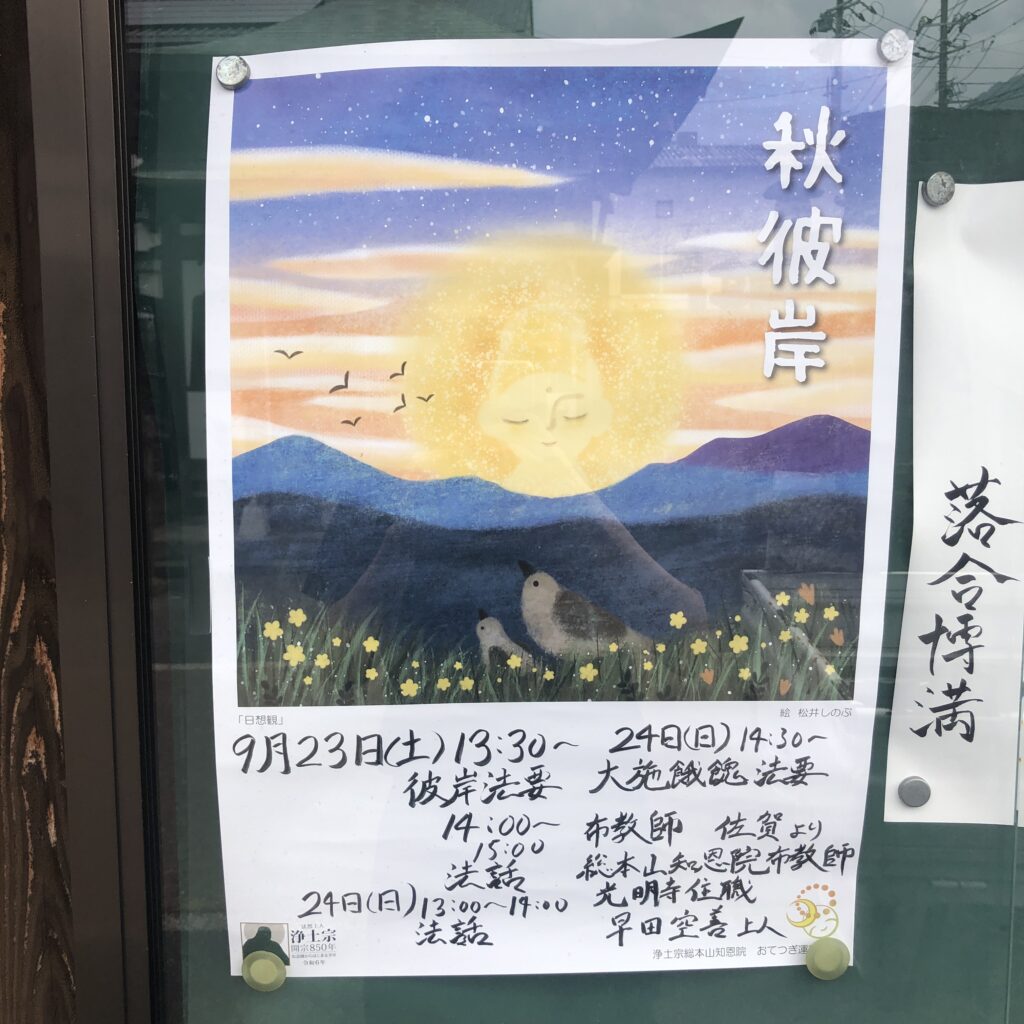 秋彼岸
「日想観」
絵 松井しのぶ
9月23日(土)13:30~
彼岸法要
14:00~
15:00
法話
24日(日)13:00~14:00
法話
24日(日)14:30~
大施餓鬼法要
布教師 佐賀より
総本山知恩院布教師
光明寺住職
早田空善上人
法然上人
浄土宗
開宗850年
令和6年
浄土宗総本山知恩院 おてつぎ運
落合博満